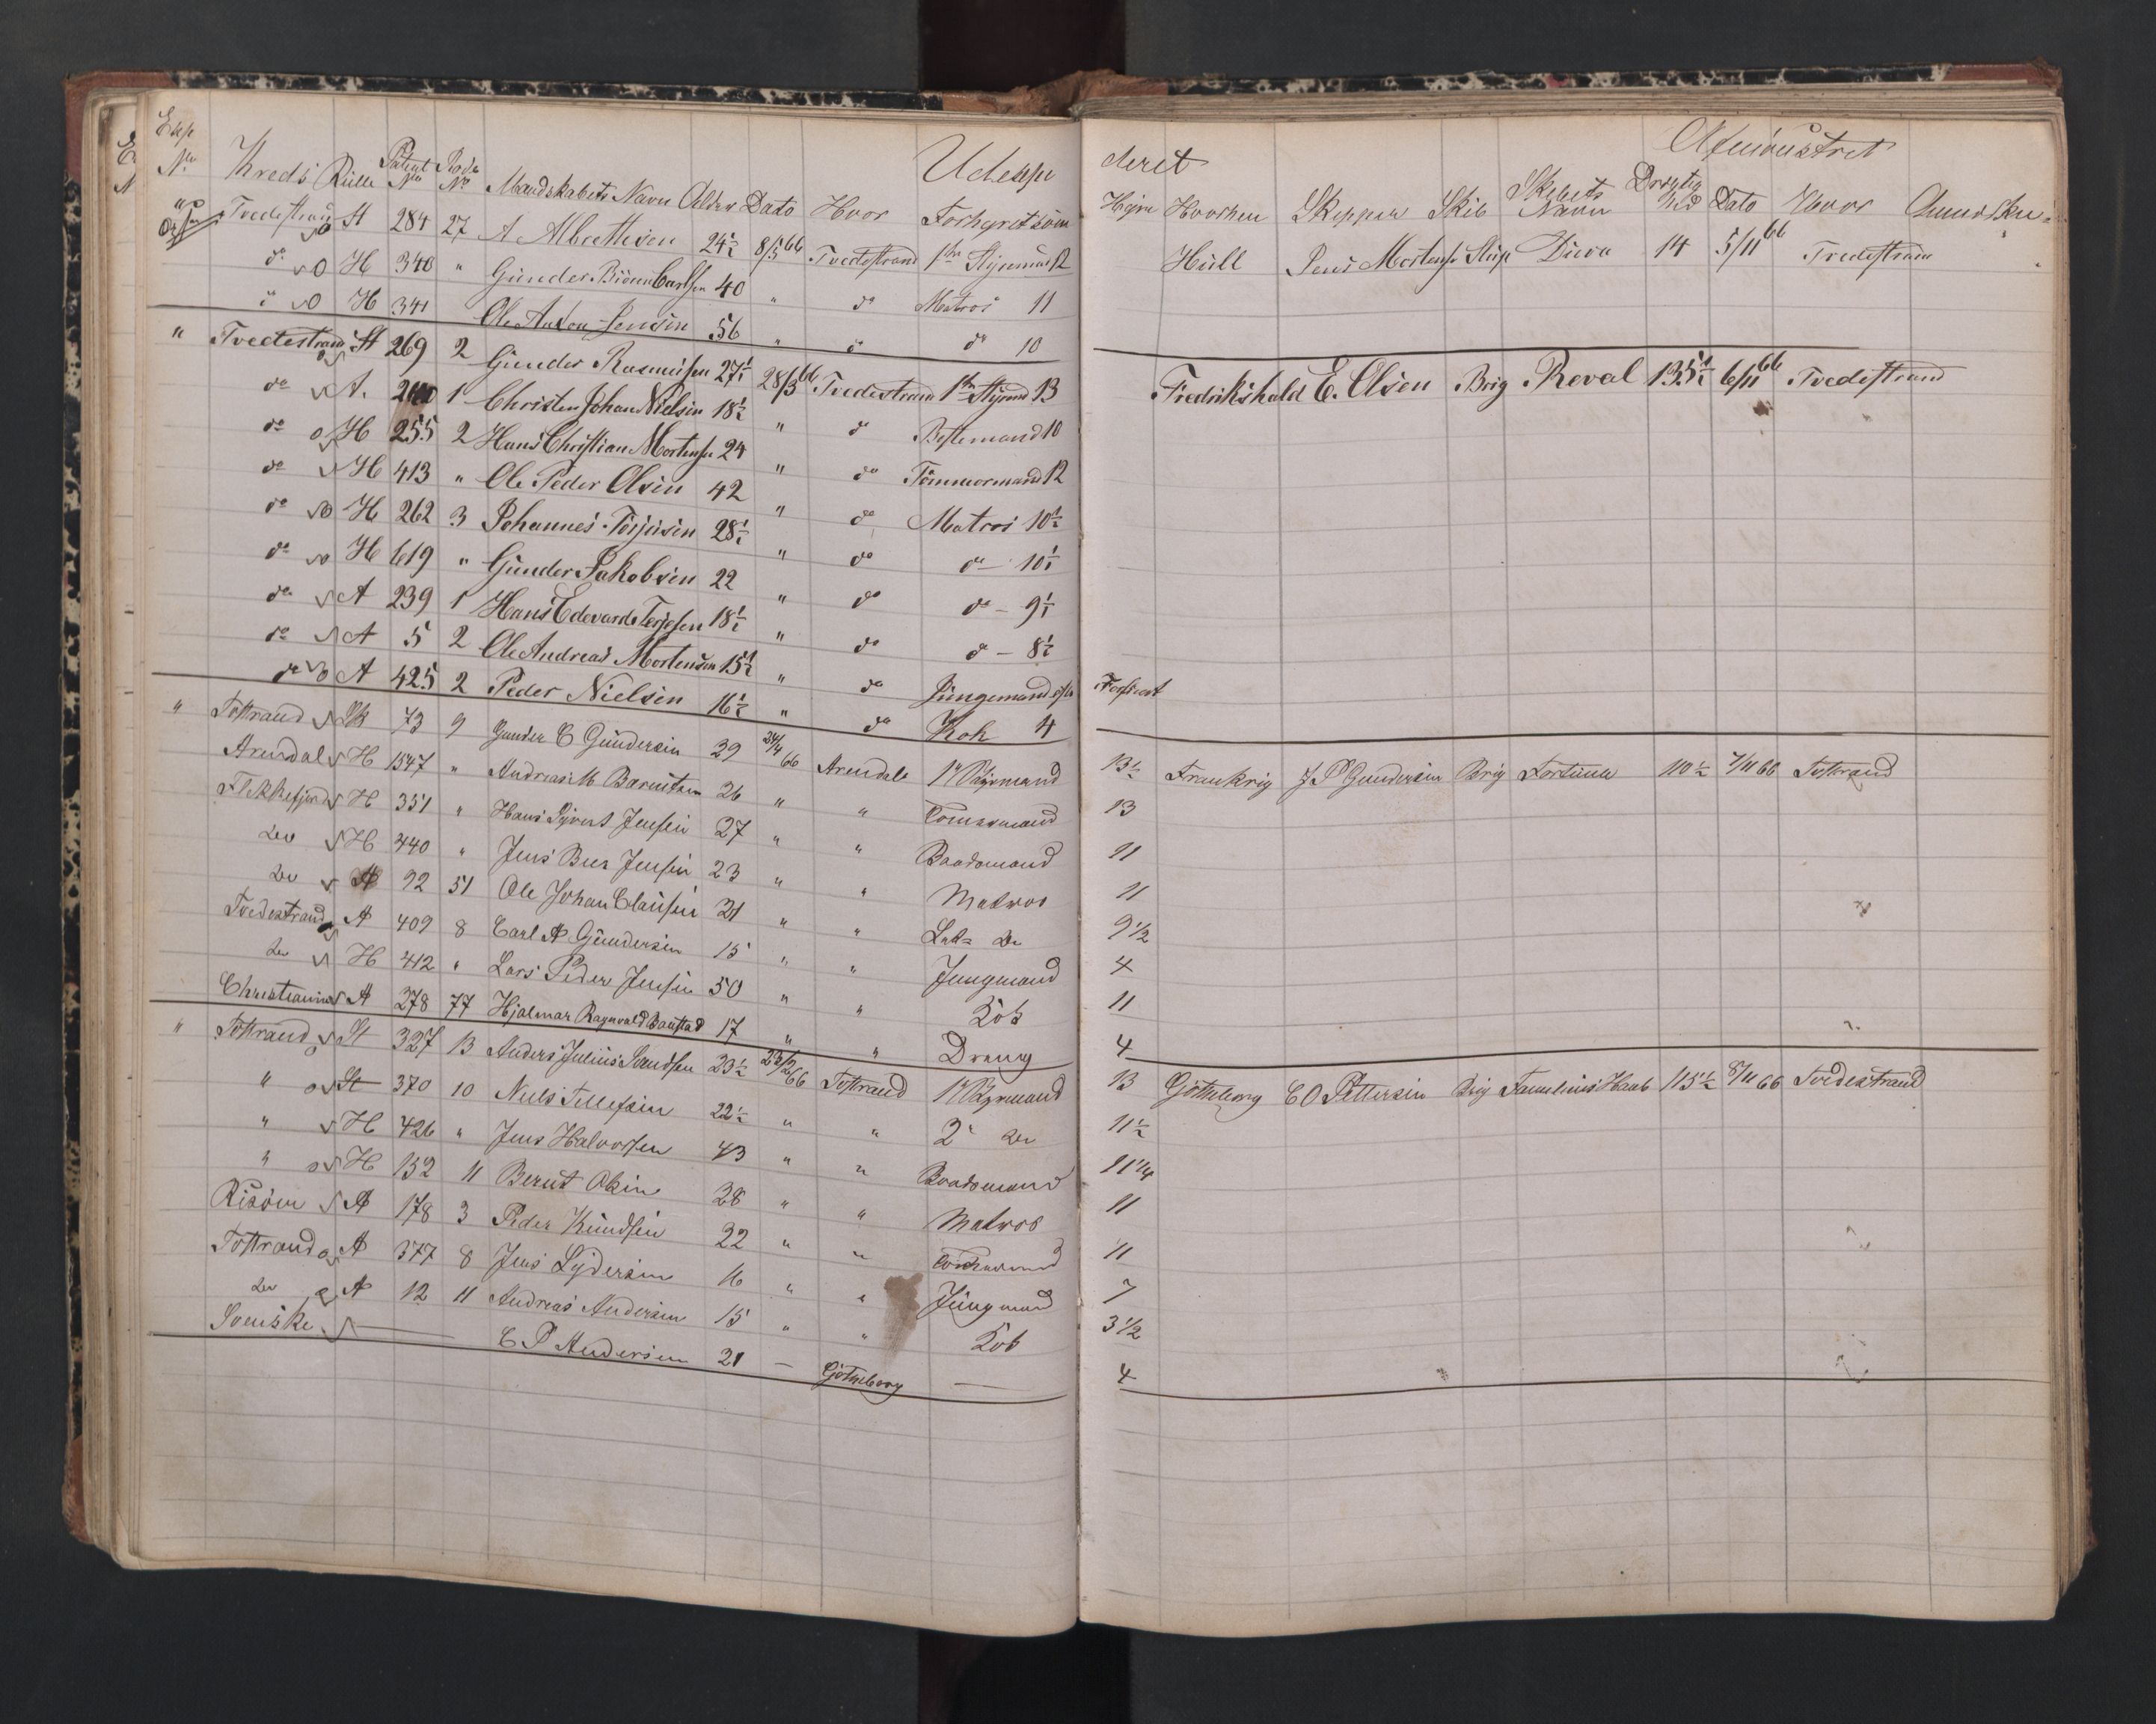 Exp
No. Kreds Rülle Patent No Rode No Mandskabets Navn Alder Dato Hvor Forhyret som
Udexpe
deret
Afmønstret
Hyre Hvorhen Skipper Skib Skibets Navn Drægtighed Dato Hvor
" Tvedestrand St 284 27 A Albrethsen 24½ 8/5 66 Tvedestrand 1ste Styrmand 12 Hüll Jens Mortensen Slüp 14 5/11 66 Tvedestrand
do H 340 " Günder Biörn Carlsen 40 " do Matros 11
do H 341 Ole Anton Jensen 56 " do do 10
" Tvedestrand St 269 2 Günder Rasmüsen 27½ 28/3 66 Tvedestrand 1ste Styrmd 13 Fredrikshald E. Olsen Brig Reval 135½ 6/11 66 Tvedestrand
do A. 240 1 Christen Johan Nielsen 18½ " do Bestemand 10
do H 255 2 Hans Christian Mortensen 24 " do Tömmermand 12
do H 413 " Ole Peder Olsen 42 " do Matros 10½
do H 262 3 Johannes Törjesen 28½ " do do 10½
do H 619 " Günder Jakobsen 22 " do do 9½
do A 239 1 Hans Edevard Terjesen 18½ " do do 8½
do A 5 2 Ole Andreas Mortensen 15½ " do Jüngemand
do A 425 2 Peder Nielsen 16½ " do Kok 4
" Tostrand Sk 73 9 Gunder C Gündersen 29 24/4 66 Arendale 1st Styrmand 13½ Frankrig J P Gundersen Brig Fortuna 110½ 7/11 66 Tostrand
Arendal H 1547 " Andreas M Barentsen 26 " " Tömermand 13
Flekkefjord H 351 " Hans Syvert Jensen 27 " " Baadsmand 11
do H 440 " Jens Jensen 23 " " Matros 11
do A 92 51 Ole Johan Clausen 21 " " 9 1/2
Tvedestrand A 409 8 Carl A Gündersen 15 " " Jungmand 4
do H 412 " Lars Peder Jensen 50 " " Kok 11
Christiania A 278 77 Hjalmar Ragnvald Baustad 17 " " Dreng 4
" Tostrand St 327 13 Anders Julius 23½ 23/2 66 Tostrand 1st Styrmand 13 Götheborg C O Pettersen Brig Familiens Haab 115½ 8/11 66 Tvedestrand
" St 370 10 Niels Tellefsen 22½ " " 2 do 11½
" H 426 " Jens Halvorsen 43 " " Baadsmand 11 1/4
" H 152 11 Bernt Olsen 28 " " Matros 11
Risöer A 178 3 Peder Knudsen 22 " " 11
Tostrand A 377 8 Jens Lydersen 16 " " Jüngmand 7
do A 12 11 Andreas Andersen 15 " " Kok 3 1/2
Svenske — C P Andersen 21 — Götheborg — 4